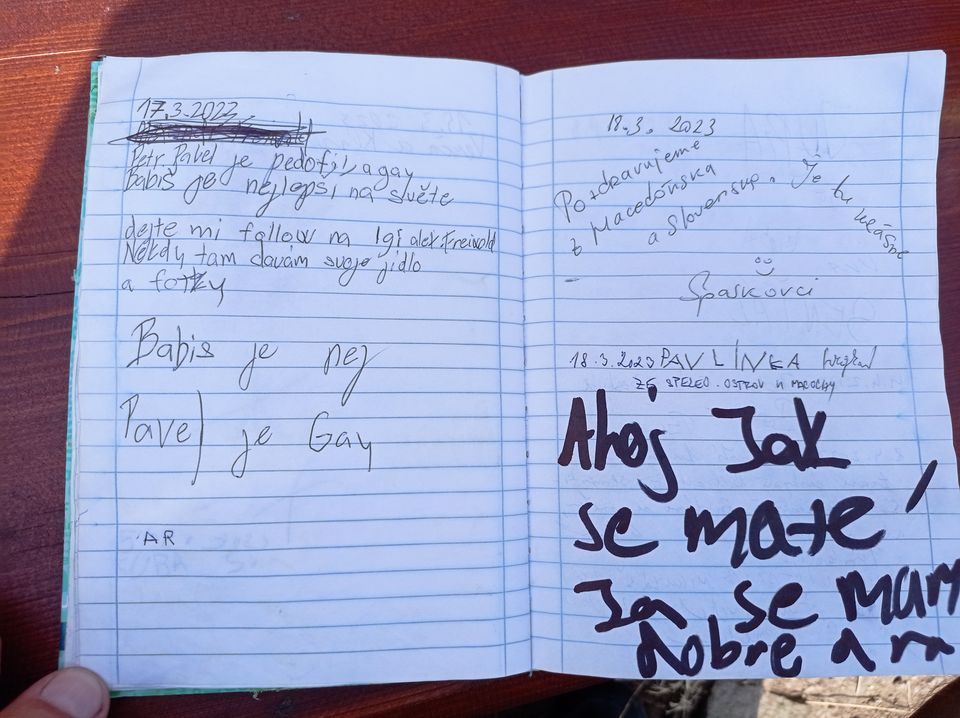 17.3.2023
Petr Pavel je pedofil, a gay
Babiš je nejlepsí na světe
dejte mi follow na Ig:
Někdy tam davám svoje jídlo
a fotky
Babis je nej
Pavel je Gay
AR
18.3. 2023
Pozdravujeme
z Macedónska
a Slovenska. Je tu krásne
Spaskovci
18.3.2023 PAVLÍNKA
ZE SPELEO. OSTROV U MACOCHY
Ahoj Jak
se mate,
Ja se mam
dobre a